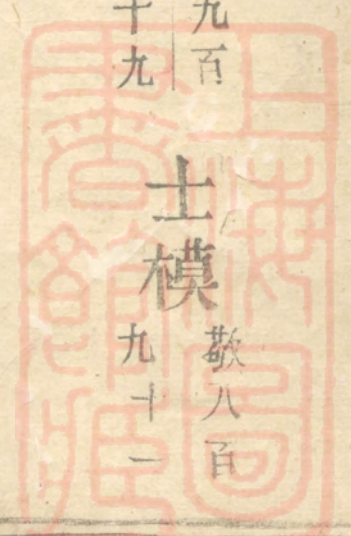 九百
十九
士模
敬八百
九十一
上海圖
書館藏